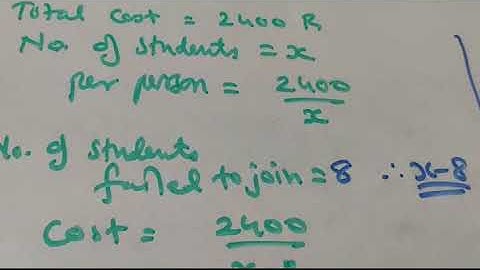 Total cost = 2400 R
No. of students = x
per person = 2400
x
No. of students
failed to join = 8 ∴ x-8
Cost = 2400